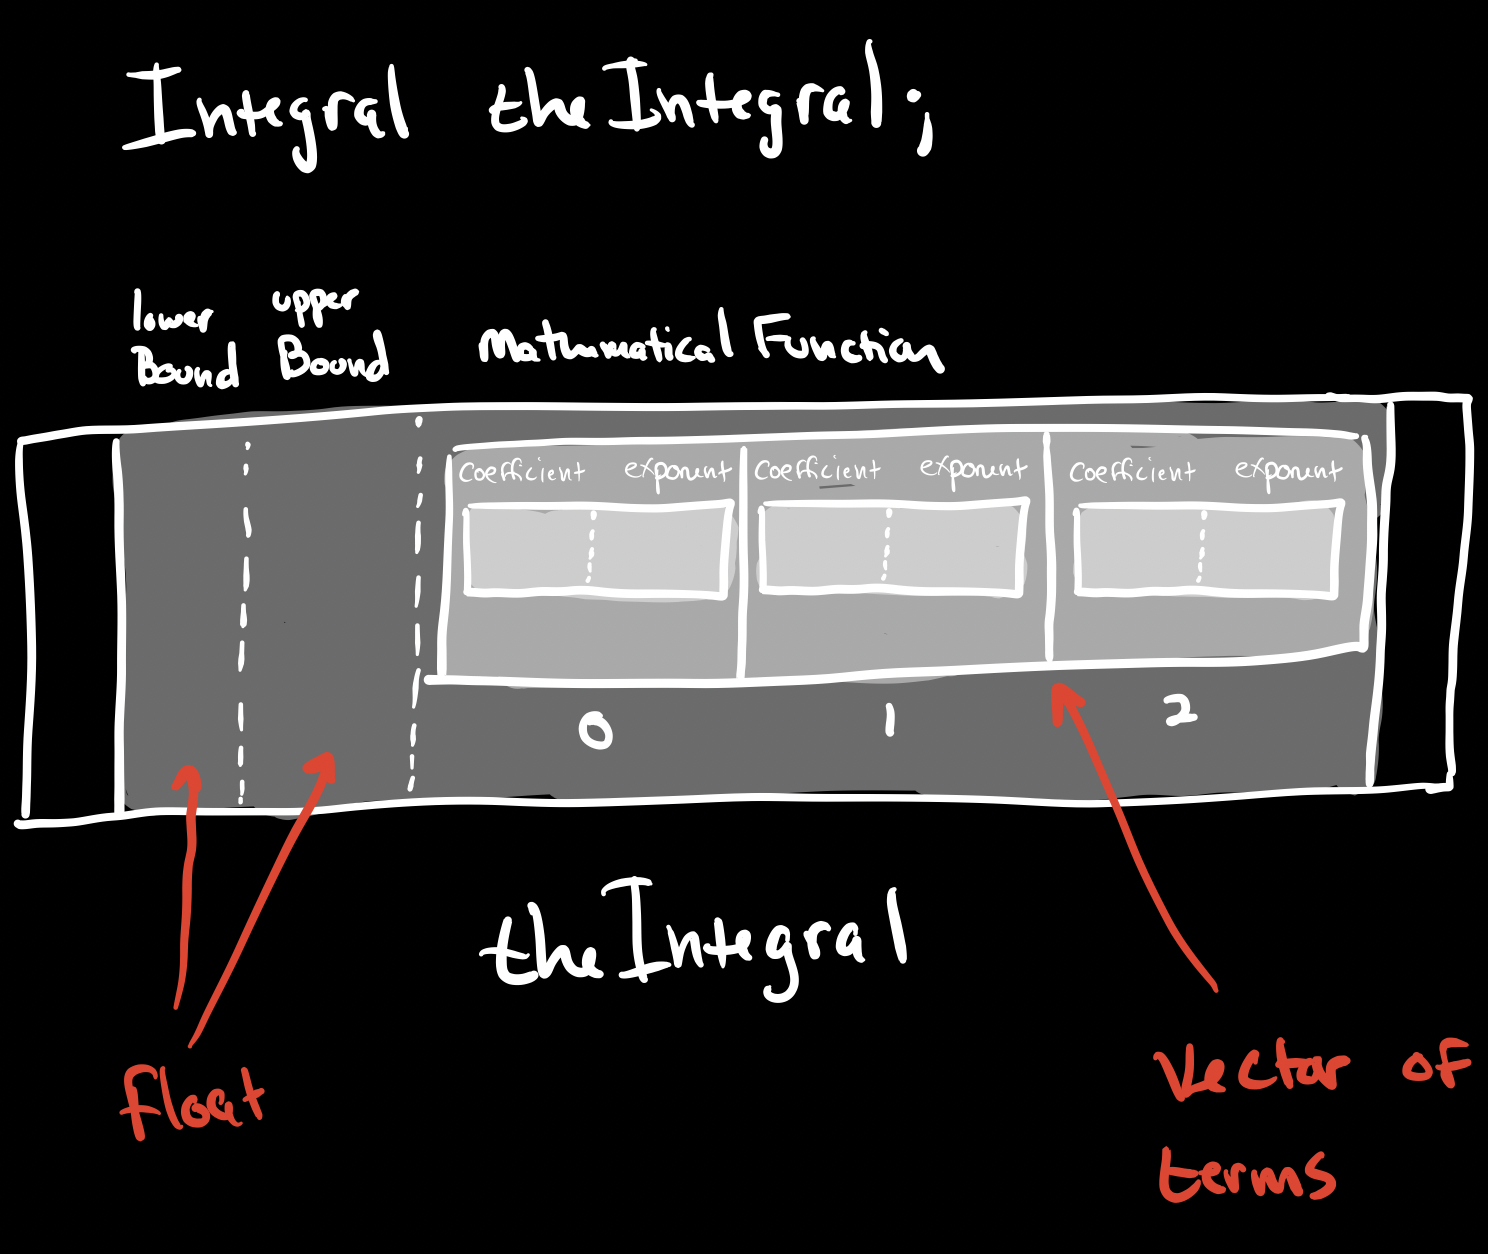 Integral theIntegral;
lower upper
Bound Bound Mathmatical Function
coefficient exponent coefficient exponent coefficient exponent
0 1 2
theIntegral
float
Vector of
terms